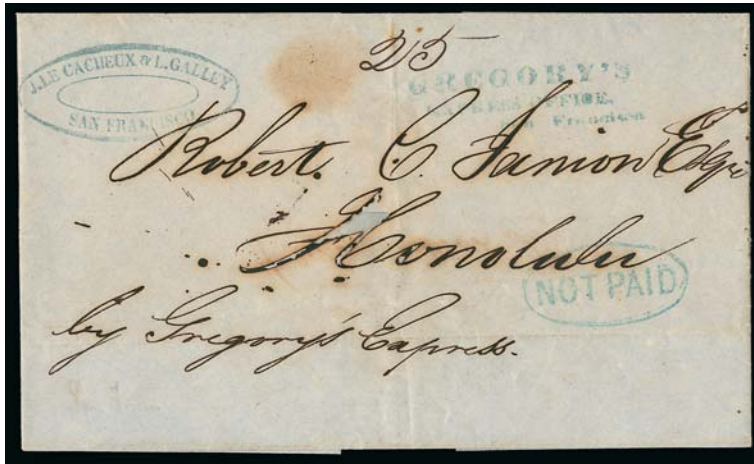 25
J. LE CACHEUX & L. GALLEY
SAN FRANCISCO
GREGORY'S
EXPRESS OFFICE,
San Francisco
Robert C. Janion Esqr
Honolulu
NOT PAID
by Gregory's Express.